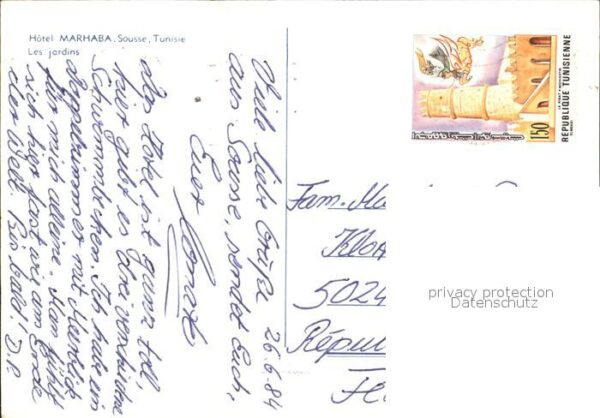 Hôtel MARHABA. Sousse, Tunisie
Les jardins
26.6.84
Viele liebe Grüße
aus Sousse, sendet Euch,
Euer
das Hotel ist ganz toll,
hier gibt es drei verschiedene
Schwimmbecken. Ich habe ein
Doppelzimmer mit Meerblick
für mich alleine. Man fühlt
sich hier fast wie am Ende
der Welt. Bis bald! D.O.
REPUBLIQUE TUNISIENNE
150
Fam.
5024
Répu
privacy protection
Datenschutz